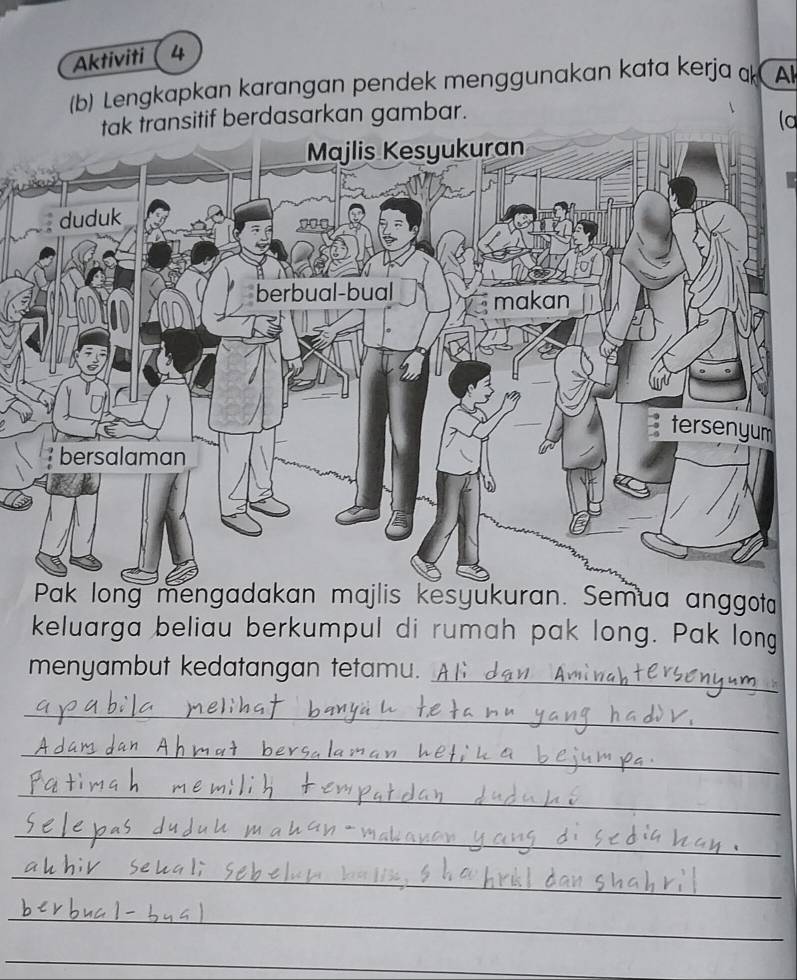 Aktiviti 4
(b) Lengkapkan karangan pendek menggunakan kata kerja ak
tak transitif berdasarkan gambar.
(a
Majlis Kesyukuran
duduk
berbual-bual
makan
tersenyum
bersalaman
Pak long mengadakan majlis kesyukuran. Semua anggota
keluarga beliau berkumpul di rumah pak long. Pak long
menyambut kedatangan tetamu. Ali dan Aminah tersenyum
apabila melihat banyak tetamu yang hadir.
Adam dan Ahmat bersalaman ketika bejumpa.
Fatimah memilih tempat dan duduk
selepas duduk makan-makanan yang di sediakan.
akhir sekali sebelum dan shahril
berbual-bual